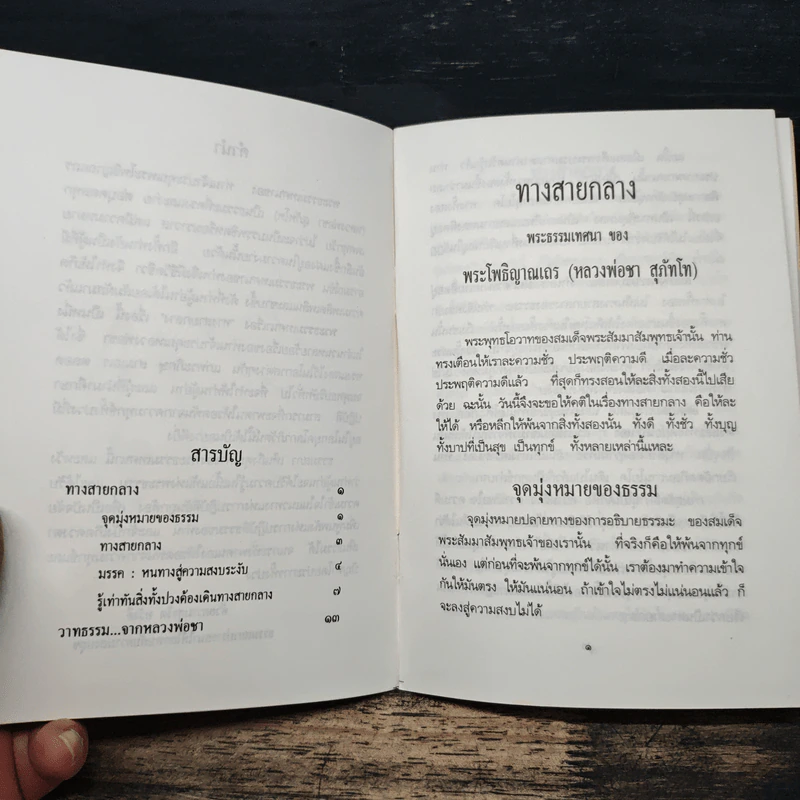 สารบัญ
ทางสายกลาง ๑
จุดมุ่งหมายของธรรม ๑
ทางสายกลาง ๓
มรรค : หนทางสู่ความสงบระงับ ๔
รู้เท่าทันสิ่งทั้งปวงต้องเดินทางสายกลาง ๗
วาทธรรม...จากหลวงพ่อชา ๑๓
ทางสายกลาง
พระธรรมเทศนา ของ
พระโพธิญาณเถร (หลวงพ่อชา สุภัทโท)
พระพุทธโอวาทของสมเด็จพระสัมมาสัมพุทธเจ้านั้น ท่าน
ทรงเตือนให้เราละความชั่ว ประพฤติความดี เมื่อละความชั่ว
ประพฤติความดีแล้ว ที่สุดก็ทรงสอนให้ละสิ่งทั้งสองนี้ไปเสีย
ด้วย ฉะนั้น วันนี้จึงจะขอให้คติในเรื่องทางสายกลาง คือให้ละ
ให้ได้ หรือหลีกให้พ้นจากสิ่งทั้งสองนั้น ทั้งดี ทั้งชั่ว ทั้งบุญ
ทั้งบาปที่เป็นสุข เป็นทุกข์ ทั้งหลายเหล่านี้แหละ
จุดมุ่งหมายของธรรม
จุดมุ่งหมายปลายทางของการอธิบายธรรมะ ของสมเด็จ
พระสัมมาสัมพุทธเจ้าของเรานั้น ที่จริงก็คือให้พ้นจากทุกข์
นั่นเอง แต่ก่อนที่จะพ้นจากทุกข์ได้นั้น เราต้องมาทำความเข้าใจ
กันให้มันตรง ให้มันแน่นอน ถ้าเข้าใจไม่ตรงไม่แน่นอนแล้ว ก็
จะลงสู่ความสงบไม่ได้
๑